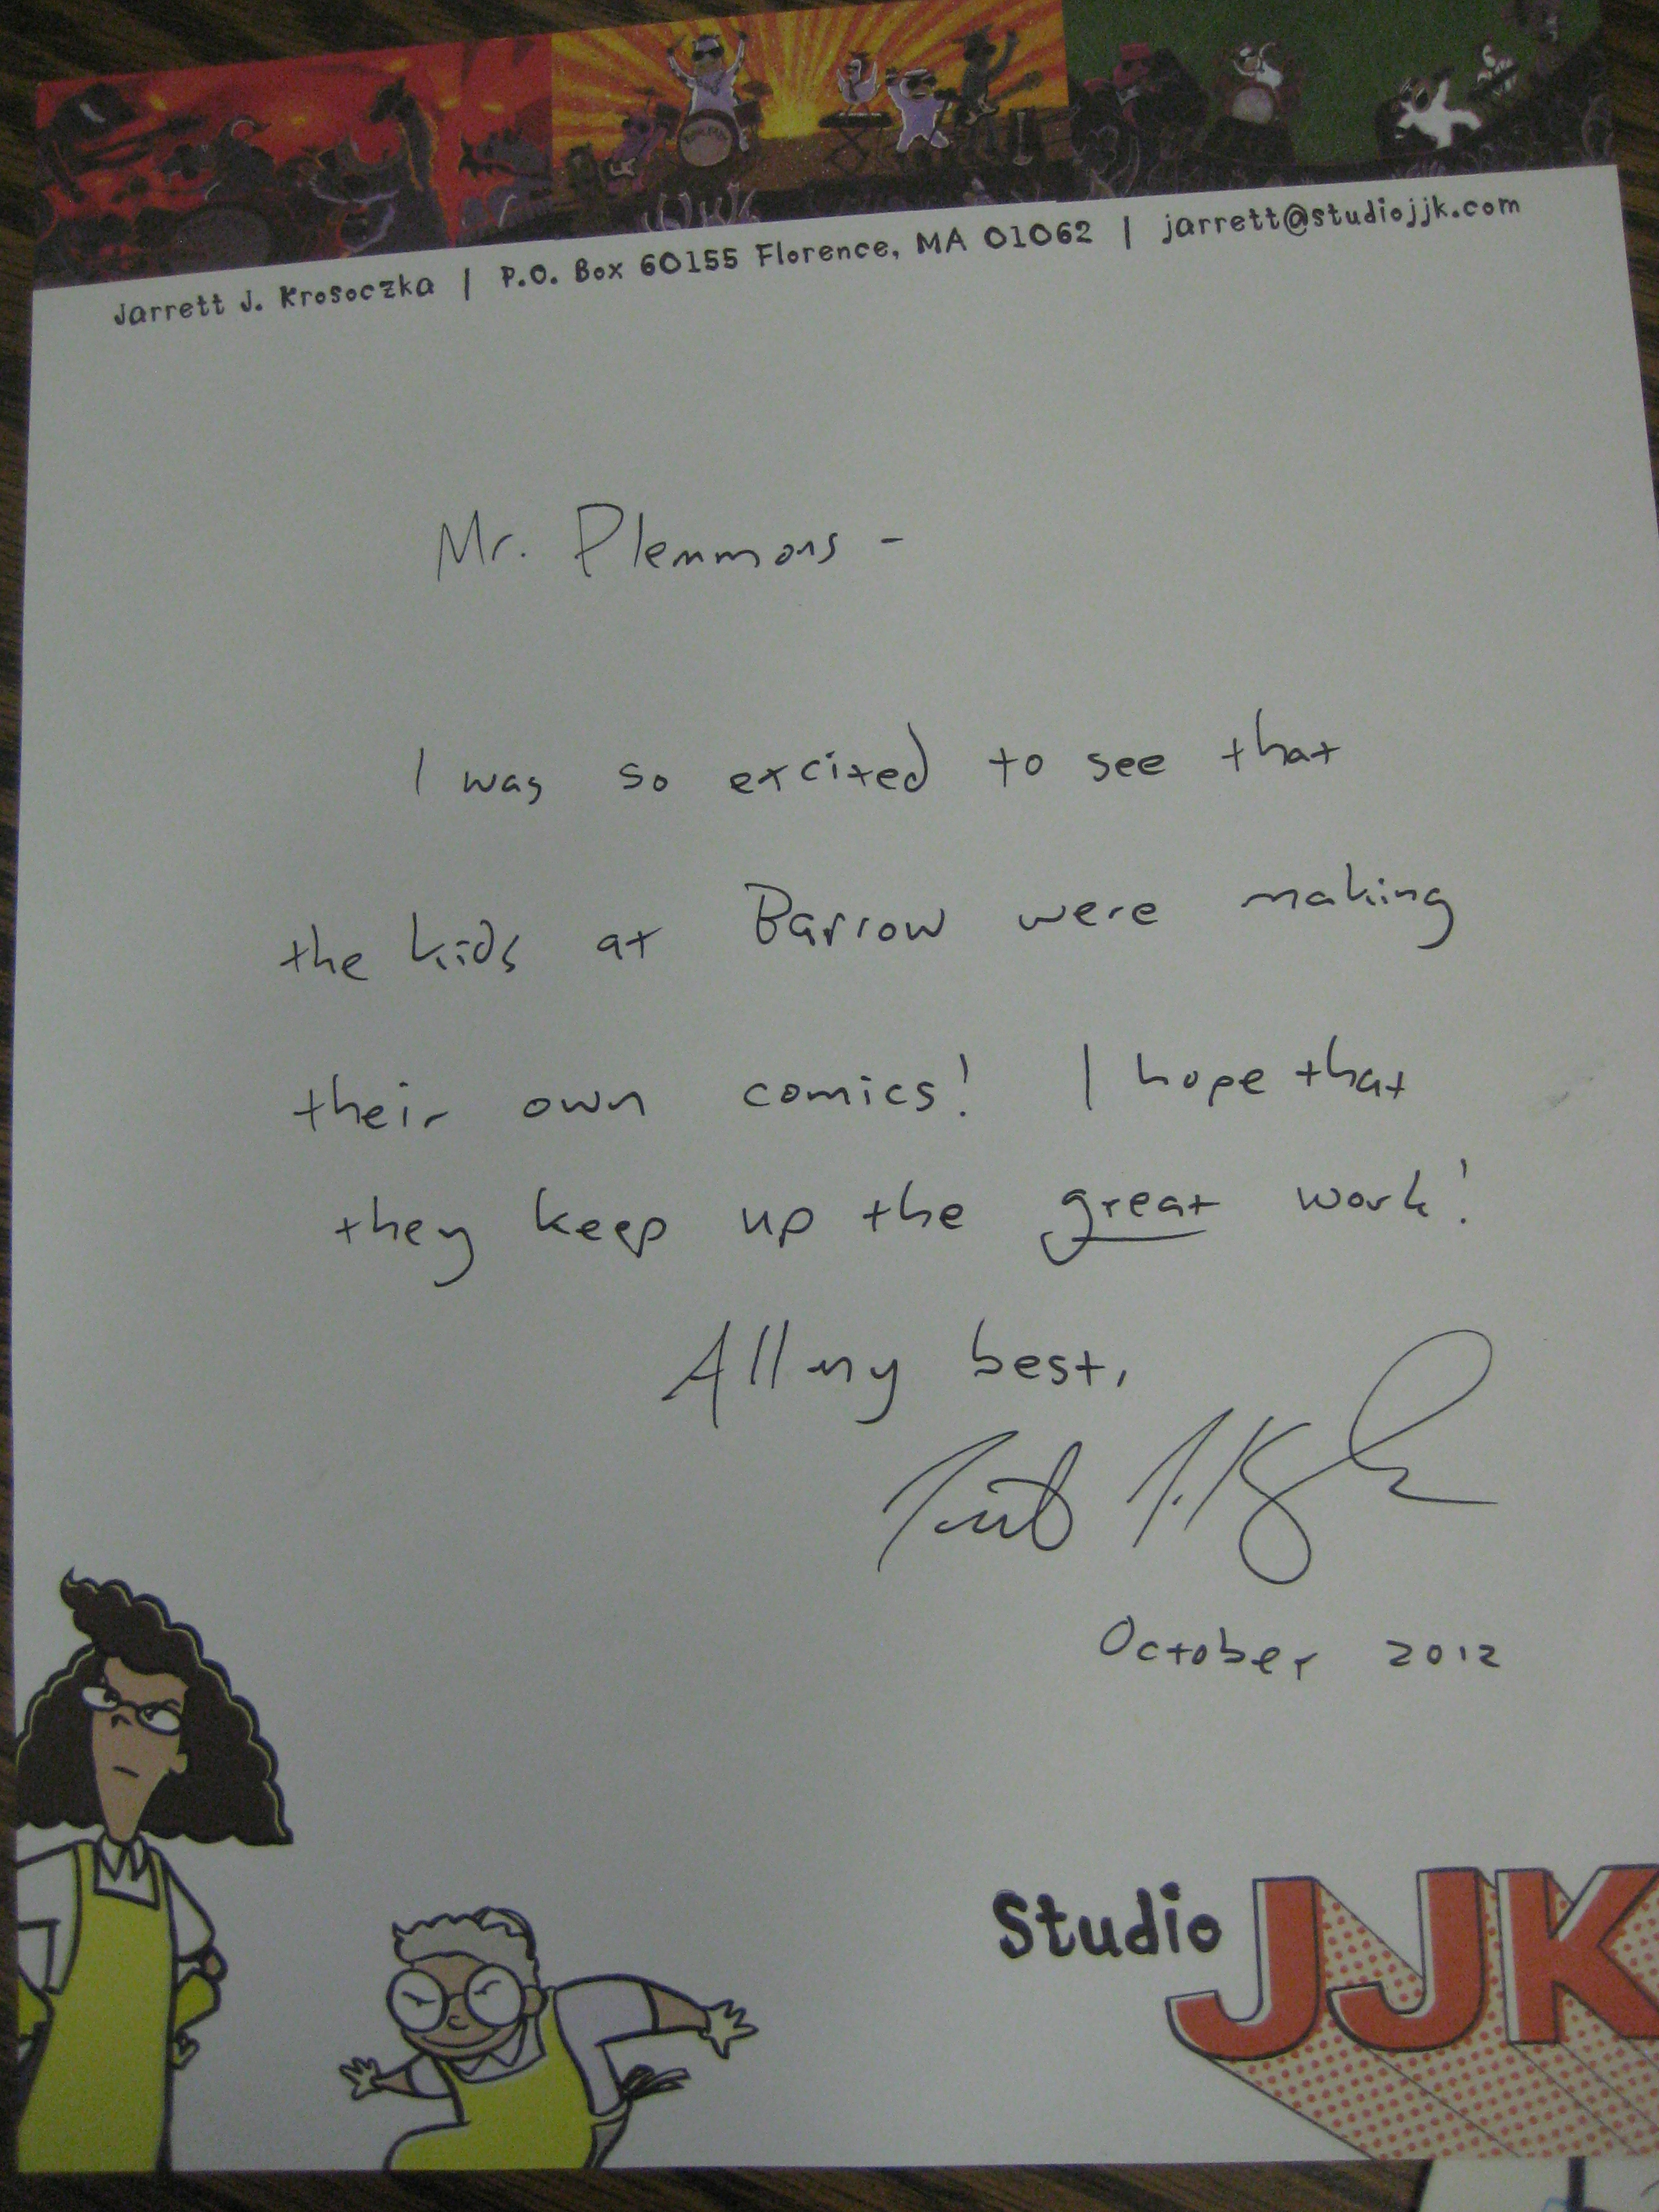 Jarrett J. Krosoczka | P.O. Box 60155 Florence, MA 01062 | jarrett@studiojjk.com
Mr. Plemmons -
I was so excited to see that
the kids at Barrow were making
their own comics! I hope that
they keep up the great work!
All my best,
Jarrett J. Krosoczka
October 2012
Studio JJK